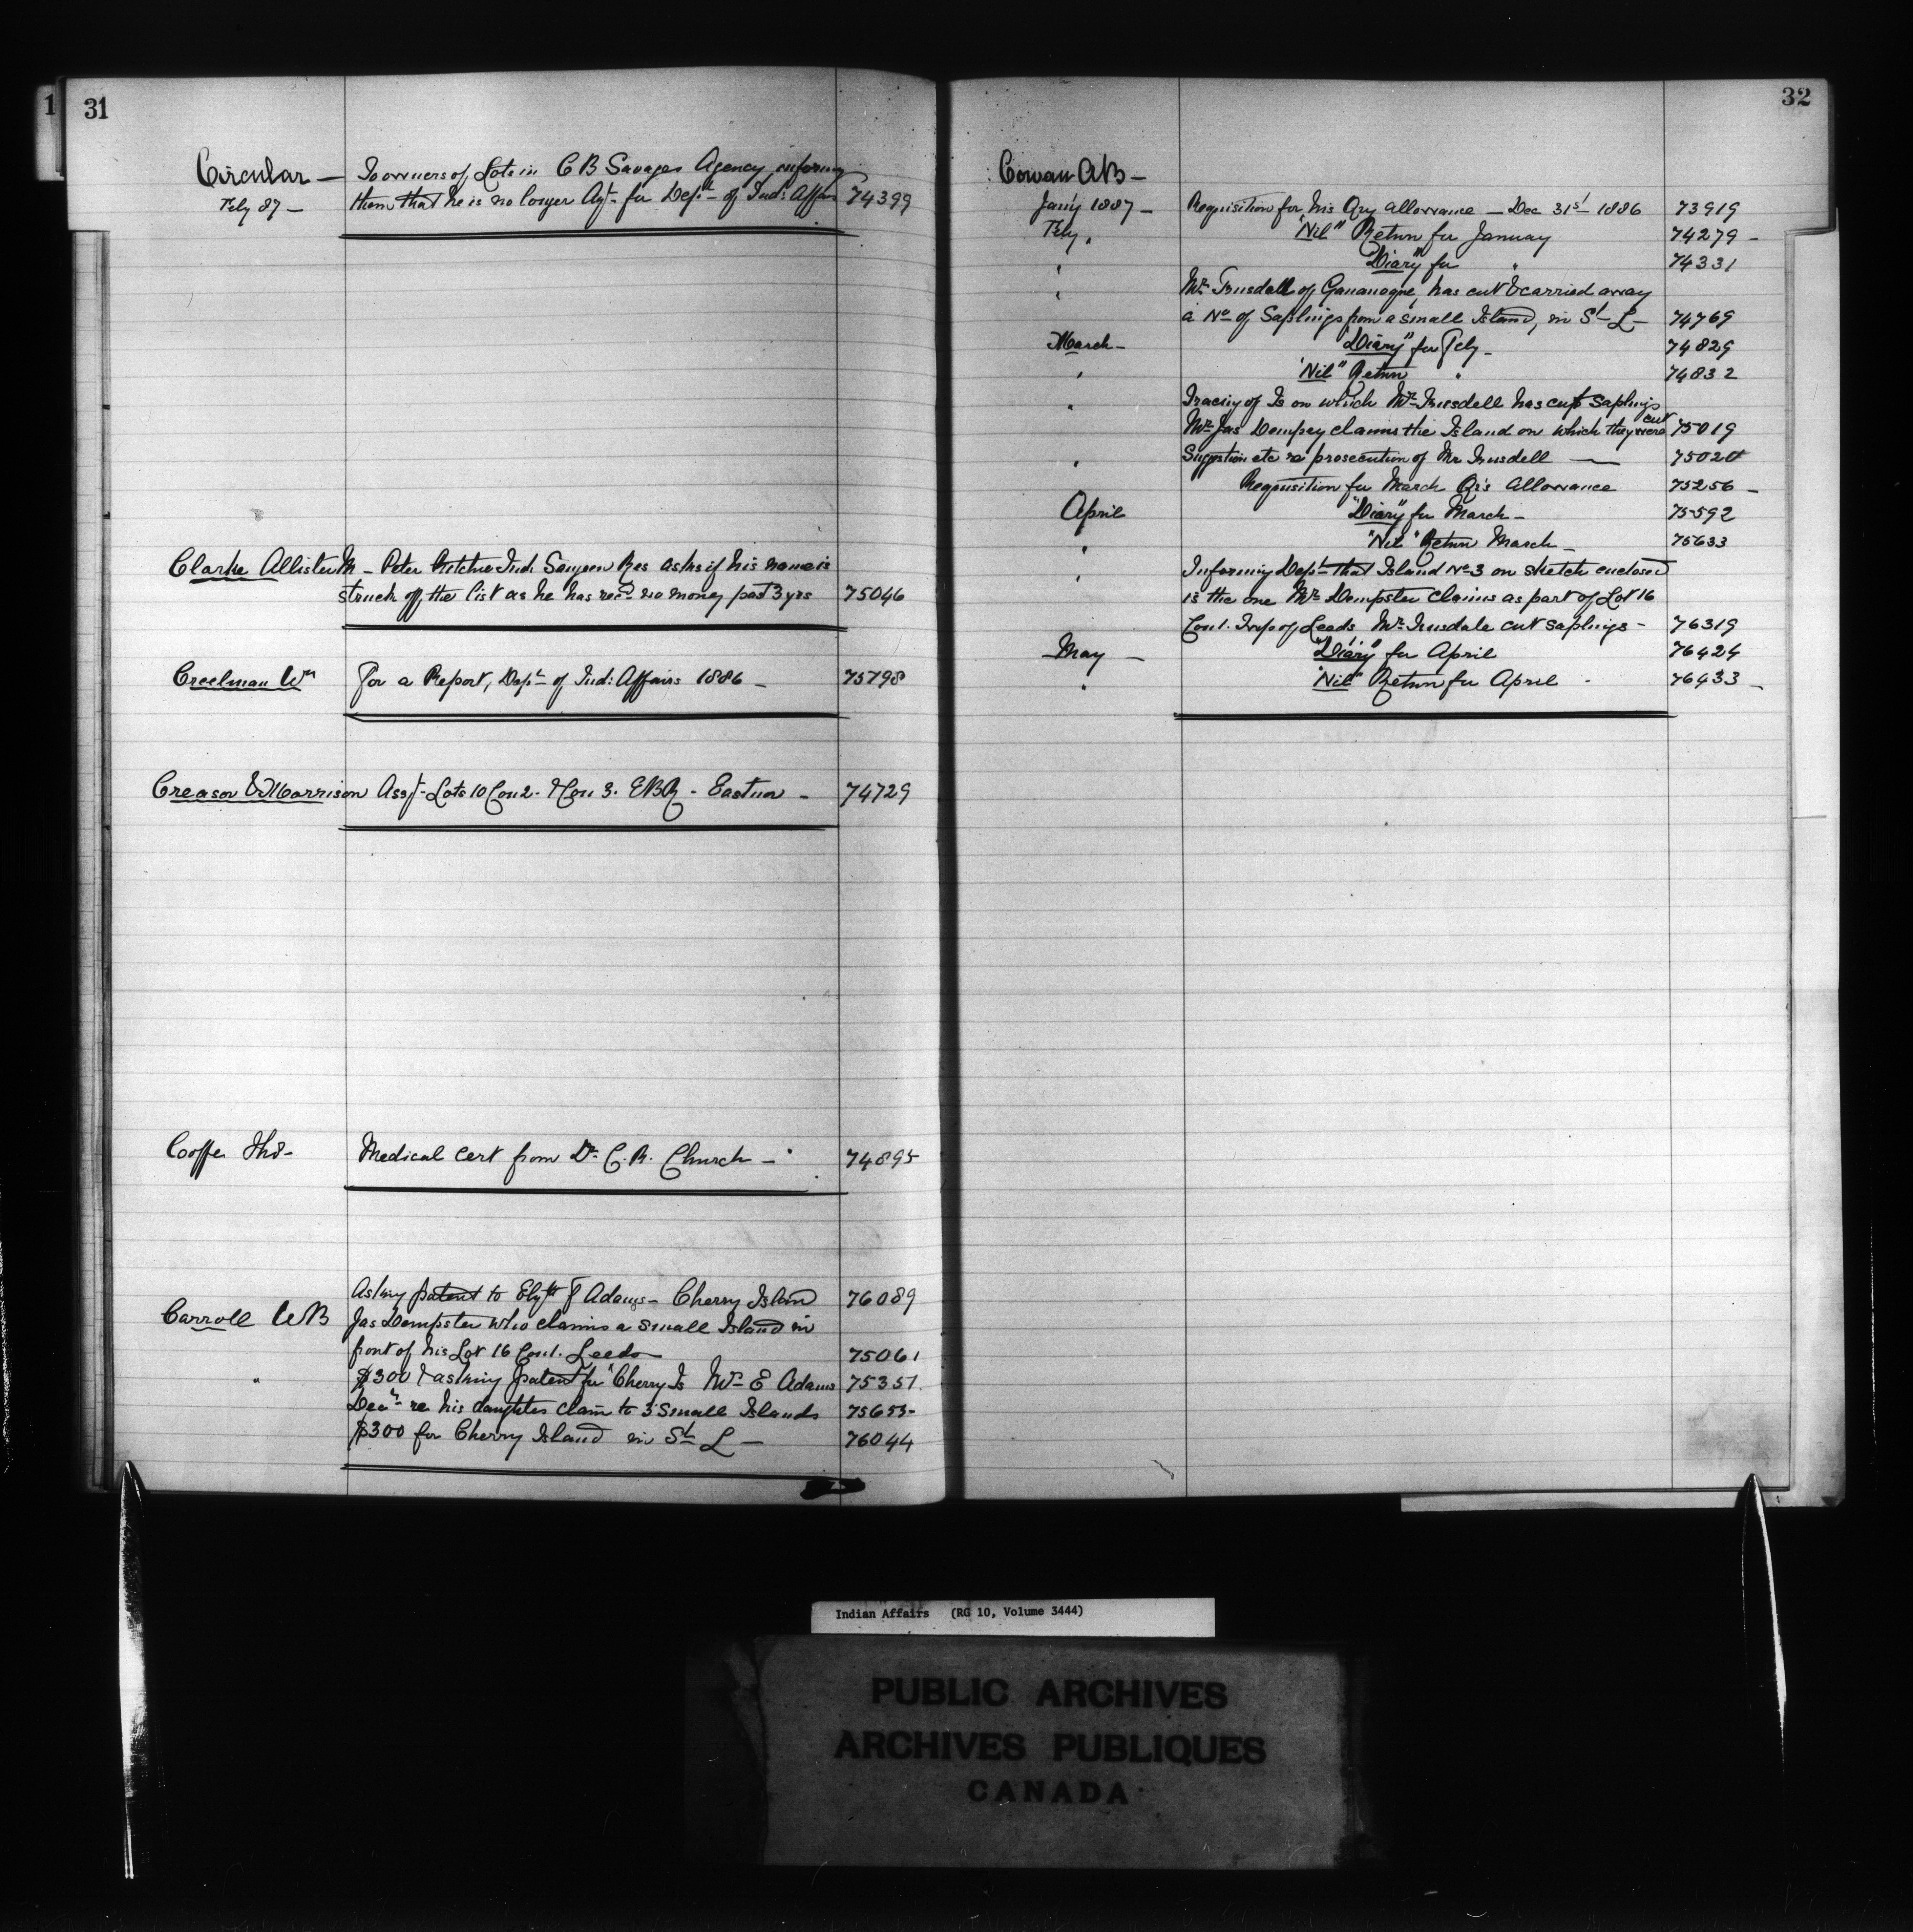 1 31
Circular — To owners of Lots in C B Savages Agency, informing
Feby 87 — them that he is no longer Agt- for Dept- of Ind: Affairs 74399
Clarke Allister M — Peter Ritchie Ind. Saugeen Res asks if his name is
struck off the list as he has recd no money past 3 yrs 75046
Creelman Wm For a Report, Dept- of Ind: Affairs 1886 — 75798
Creasor & Morrison Asst- Lots 10 Con 2. & Con 3. E B R - Eastnor - 74729
Cooffe Ths- Medical Cert from Dr C. R. Church — 74895
Asking patent to Elyth F Adams - Cherry Island 76089
Carroll W B Jas Dempster who claims a small Island in
front of his Lot 16 Con 1. Leeds 75061
" $300 & asking patent for "Cherry Is Mrs E Adams 75351.
Decn re his daughters claim to 3 small Islands 75653-
$300 for Cherry Island in St L — 76044
32
Cowan A B —
Jan'y 1887 — Requisition for his Qry allowance — Dec 31st 1886 73919
Feby " "Nil" Return for January 74279 -
" "Diary" for " 74331
" Mr Trusdell of Gananoque, has cut & carried away
a No of Saplings from a small Island, in St- L- 74769
March - "Diary" for Feby - 74829
" "Nil" Return " 74832
" Tracing of Is on which Mr Trusdell has cut saplings
Mr Jas Dempsey claims the Island on which they were cut 75019
" Suggestion etc re prosecution of Mr Trusdell — 75020
Requisition for March Qr's Allowance 75256 -
April "Diary" for March - 75592
" "Nil" Return March - 75633
" Informing Dept- that Island No 3 on sketch enclosed
is the one Mr Dempster claims as part of Lot 16
Con 1. Twp of Leeds Mr Trusdale cut saplings - 76319
May — "Diary" for April 76424
" "Nil" Return for April - 76433 -
Indian Affairs (RG 10, Volume 3444)
PUBLIC ARCHIVES
ARCHIVES PUBLIQUES
CANADA